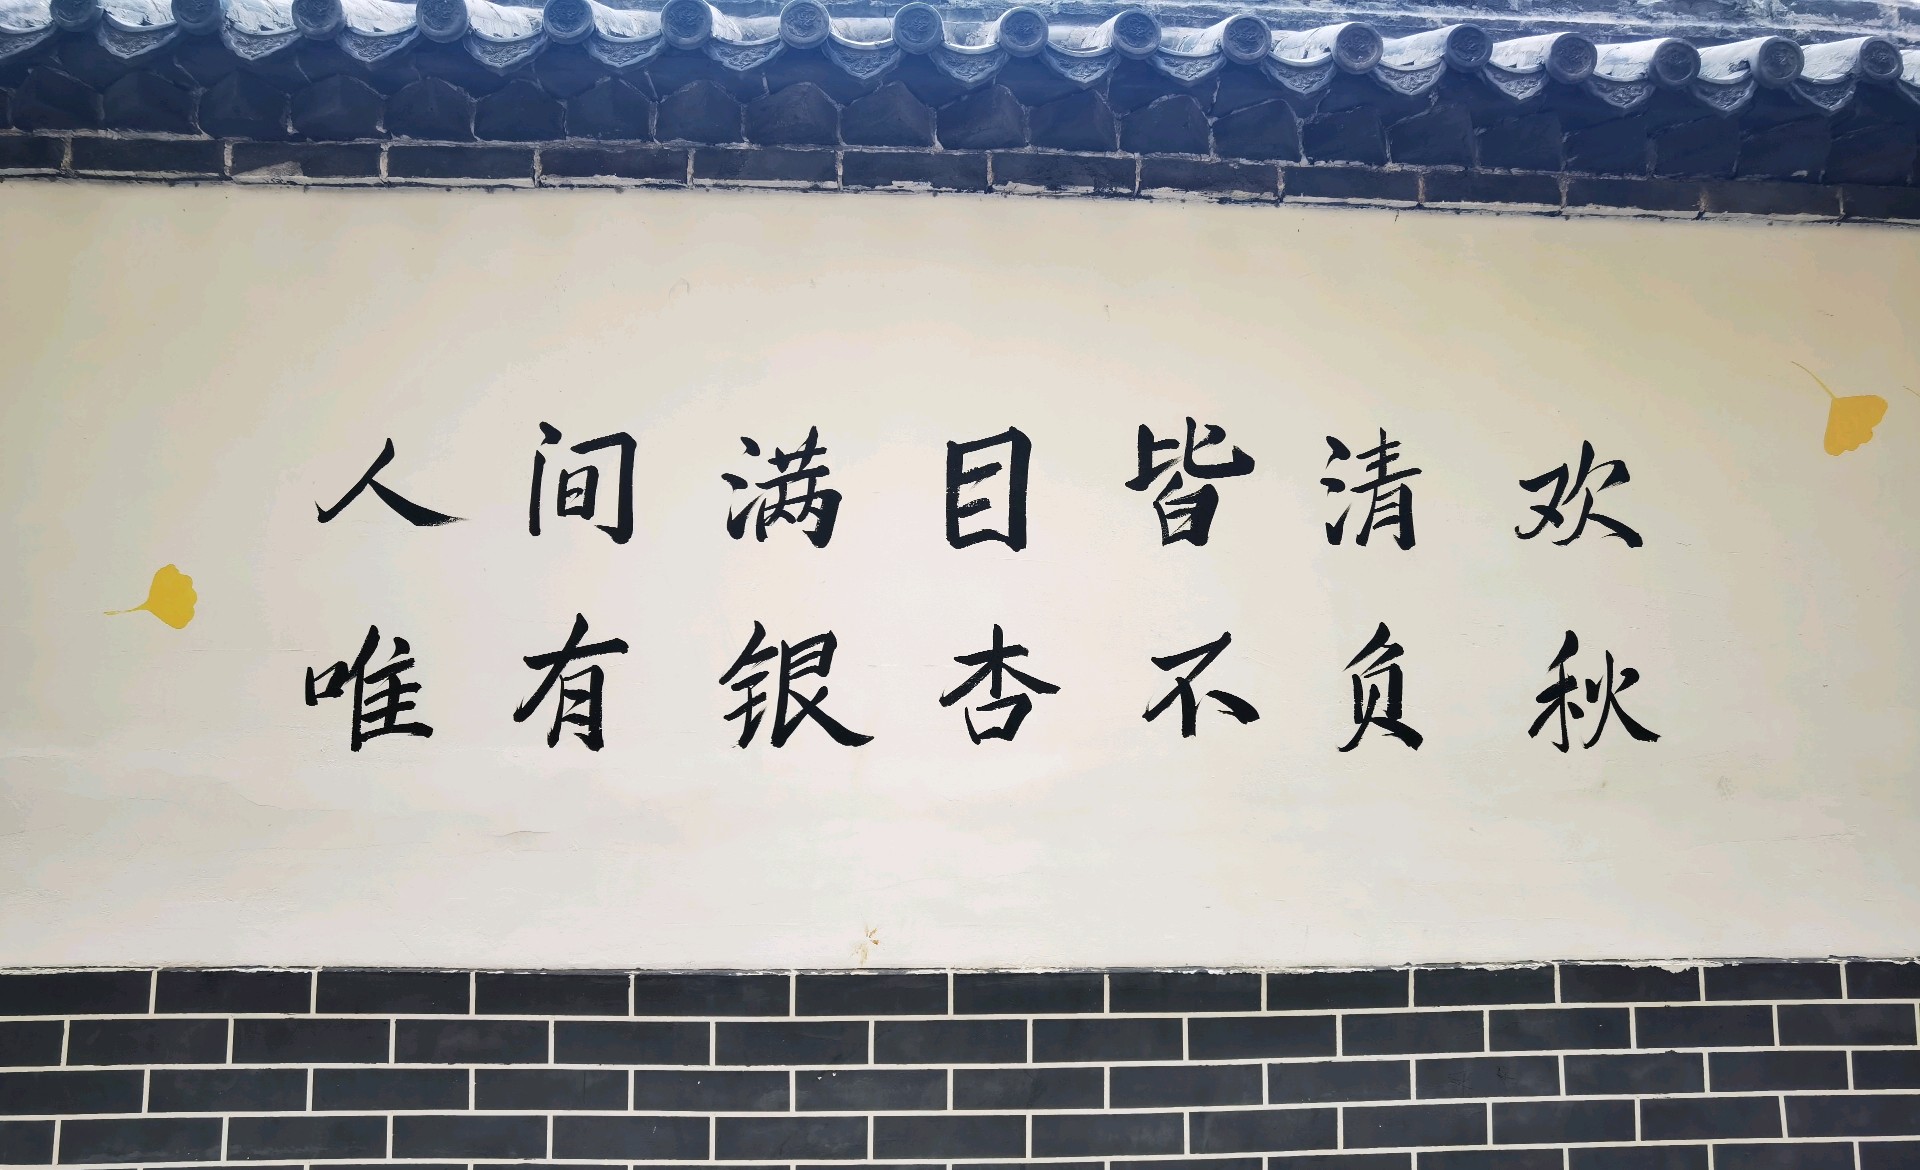 人间满目皆清欢
唯有银杏不负秋